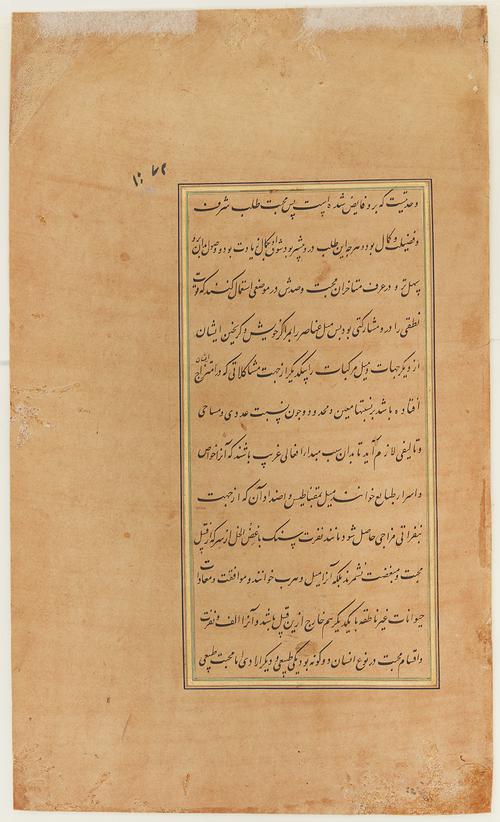 وحدتیست که برو فایض شده است پس محبت طلب شرف
و فضیلت و کمال بود و هرچه این طلب درو بیشتر بود شوق او بکمال زیادت بود و وصول بدان برو
سهل‌تر و در عرف متاخران محبت و ضدش در موضعی استعمال کنند که قوت
نطقی را درو مشارکتی بود پس میل عناصر را بمراکز خویش و گریختن ایشان
از دیگر جهات و میل مرکبات را بیکدیگر از جهت مشاکلاتی که در امتزاج ایشان
افتاده باشد بر نسبتهای معین و محدود چون نسبت عددی و مساحی
و تالیفی لازم آید تا بدان سبب مبدا افعالی غریب باشند که آنرا خواص
و اسرار طبایع خوانند مانند میل آهن بمقناطیس و اضداد آن که از جهت
نفراتی مزاجی حاصل شود مانند نفرت سنگ باغض الخل از سرکه از قبیل
محبت و مبغضت نشمرند بلکه آنرا میل و هرب خوانند و موافقت و معادات
حیوانات غیر ناطقه با یکدیگر هم خارج ازین قبیل باشد و آنرا الف و نفرت
و اقسام محبت در نوع انسان دو گونه بود یکی طبیعی و دیگر ارادی اما محبت طبیعی